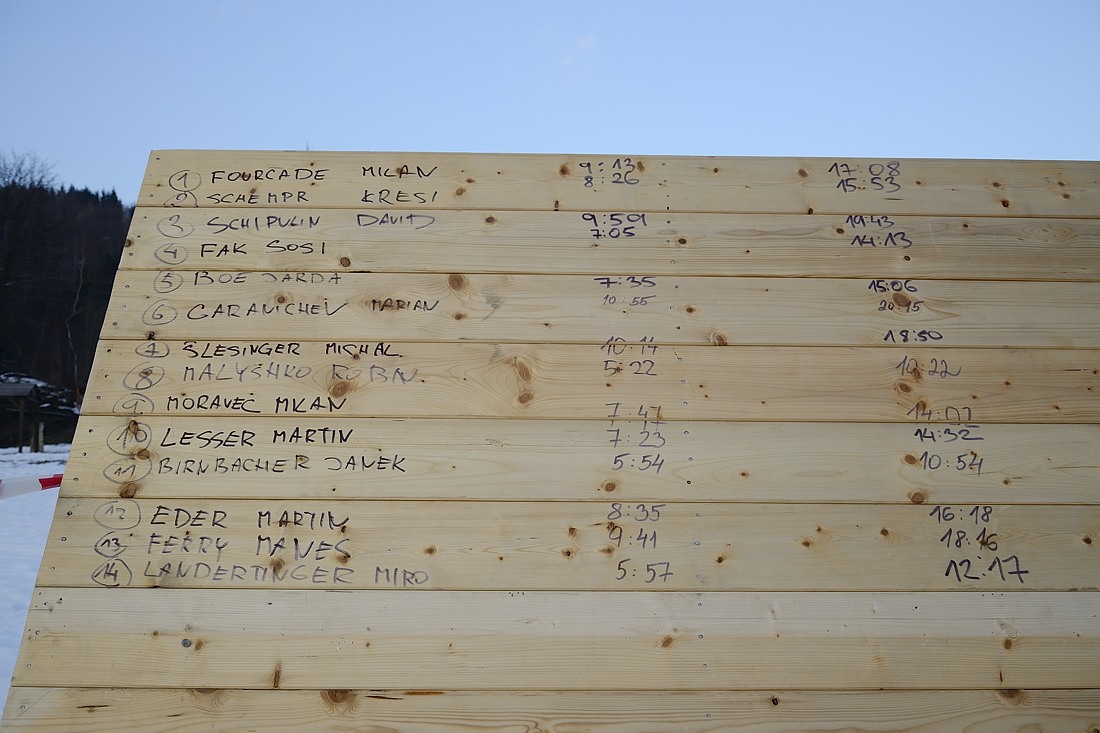 1 FOURCADE MILAN 9:13 17:08
2 SCHEMPR KRESI 8:26 15:53
3 SCHIPULIN DAVID 9:59 19:43
4 FAK SOSI 7:05 14:13
5 BOE JARDA 7:35 15:06
6 GARANICHEV MARIAN 10:55 20:15
7 ŠLESINGER MICHAL 10:14 18:50
8 MALYSHKO ROBIN 5:22 10:22
9 MORAVEC MILAN 7:47
10 LESSER MARTIN 7:23 14:32
11 BIRNBACHER JANEK 5:54 10:54
12 EDER MARTIN 8:35 16:18
13 FERRY MANES 9:41 18:16
14 LANDERTINGER MIRO 5:57 12:17